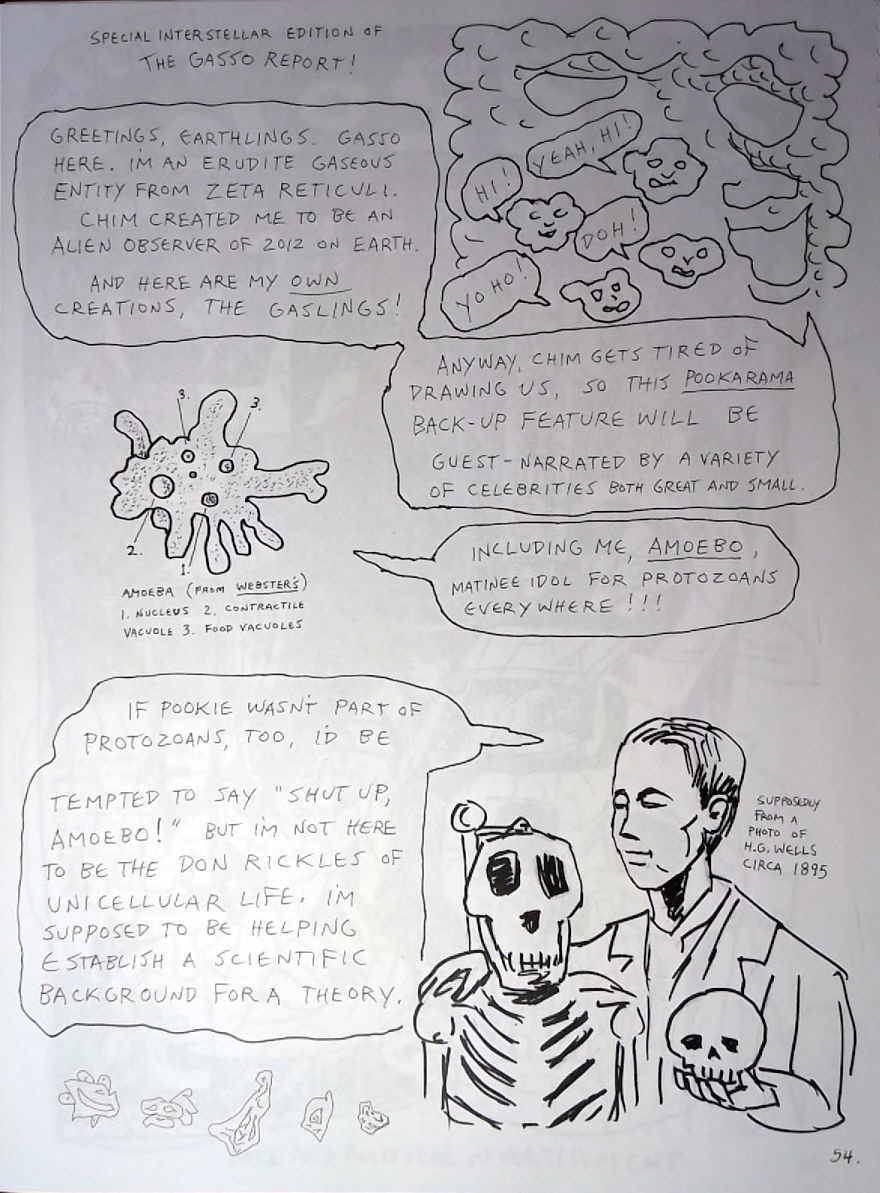 SPECIAL INTERSTELLAR EDITION OF
THE GASSO REPORT!
GREETINGS, EARTHLINGS. GASSO
HERE. I'M AN ERUDITE GASEOUS
ENTITY FROM ZETA RETICULI.
CHIM CREATED ME TO BE AN
ALIEN OBSERVER OF 2012 ON EARTH.
AND HERE ARE MY OWN
CREATIONS, THE GASLINGS!
YEAH, HI!
HI!
DOH!
YO HO!
ANYWAY, CHIM GETS TIRED OF
DRAWING US, SO THIS POOKARAMA
BACK-UP FEATURE WILL BE
GUEST-NARRATED BY A VARIETY
OF CELEBRITIES BOTH GREAT AND SMALL.
3.
3.
2.
1.
AMOEBA (FROM WEBSTER'S)
1. NUCLEUS 2. CONTRACTILE
VACUOLE 3. FOOD VACUOLES
INCLUDING ME, AMOEBO,
MATINEE IDOL FOR PROTOZOANS
EVERYWHERE!!!
IF POOKIE WASN'T PART OF
PROTOZOANS, TOO, I'D BE
TEMPTED TO SAY "SHUT UP,
AMOEBO!" BUT I'M NOT HERE
TO BE THE DON RICKLES OF
UNICELLULAR LIFE. I'M
SUPPOSED TO BE HELPING
ESTABLISH A SCIENTIFIC
BACKGROUND FOR A THEORY.
SUPPOSEDLY
FROM A
PHOTO OF
H.G. WELLS
CIRCA 1895
54.